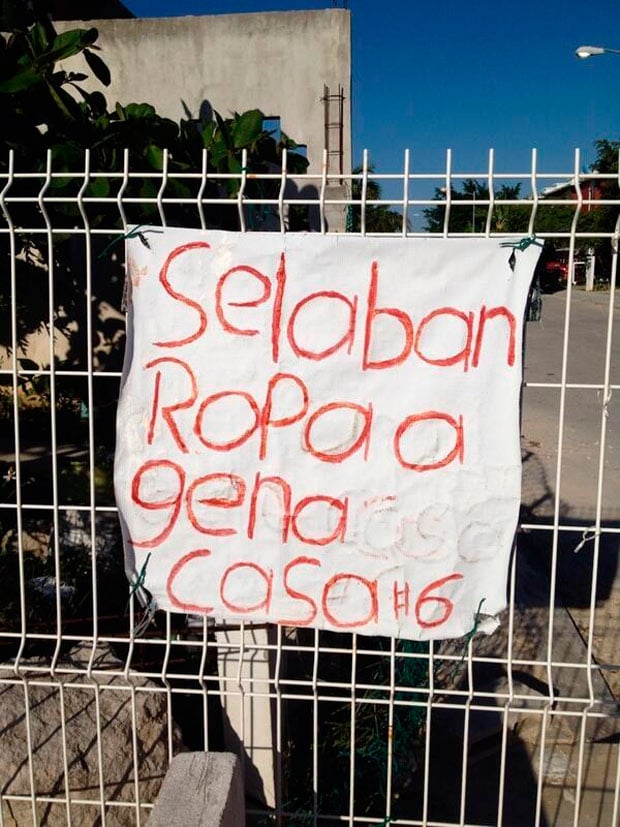 Selaban
Ropa a
gena
casa #6